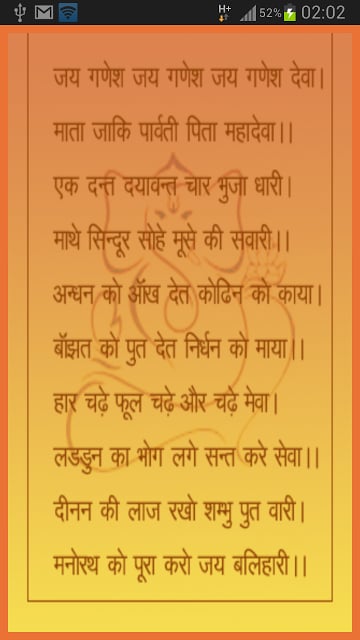 H+
52%
02:02
जय गणेश जय गणेश जय गणेश देवा।
माता जाकि पार्वती पिता महादेवा।।
एक दन्त दयावन्त चार भुजा धारी।
माथे सिन्दूर सोहे मूसे की सवारी।।
अन्धन को ऑख देत कोढिन को काया।
बॉझत को पुत देत निर्धन को माया।।
हार चढ़े फूल चढ़े और चढ़े मेवा।
लडडुन का भोग लगे सन्त करे सेवा।।
दीनन की लाज रखो शम्भु पुत वारी।
मनोरथ को पूरा करो जय बलिहारी।।